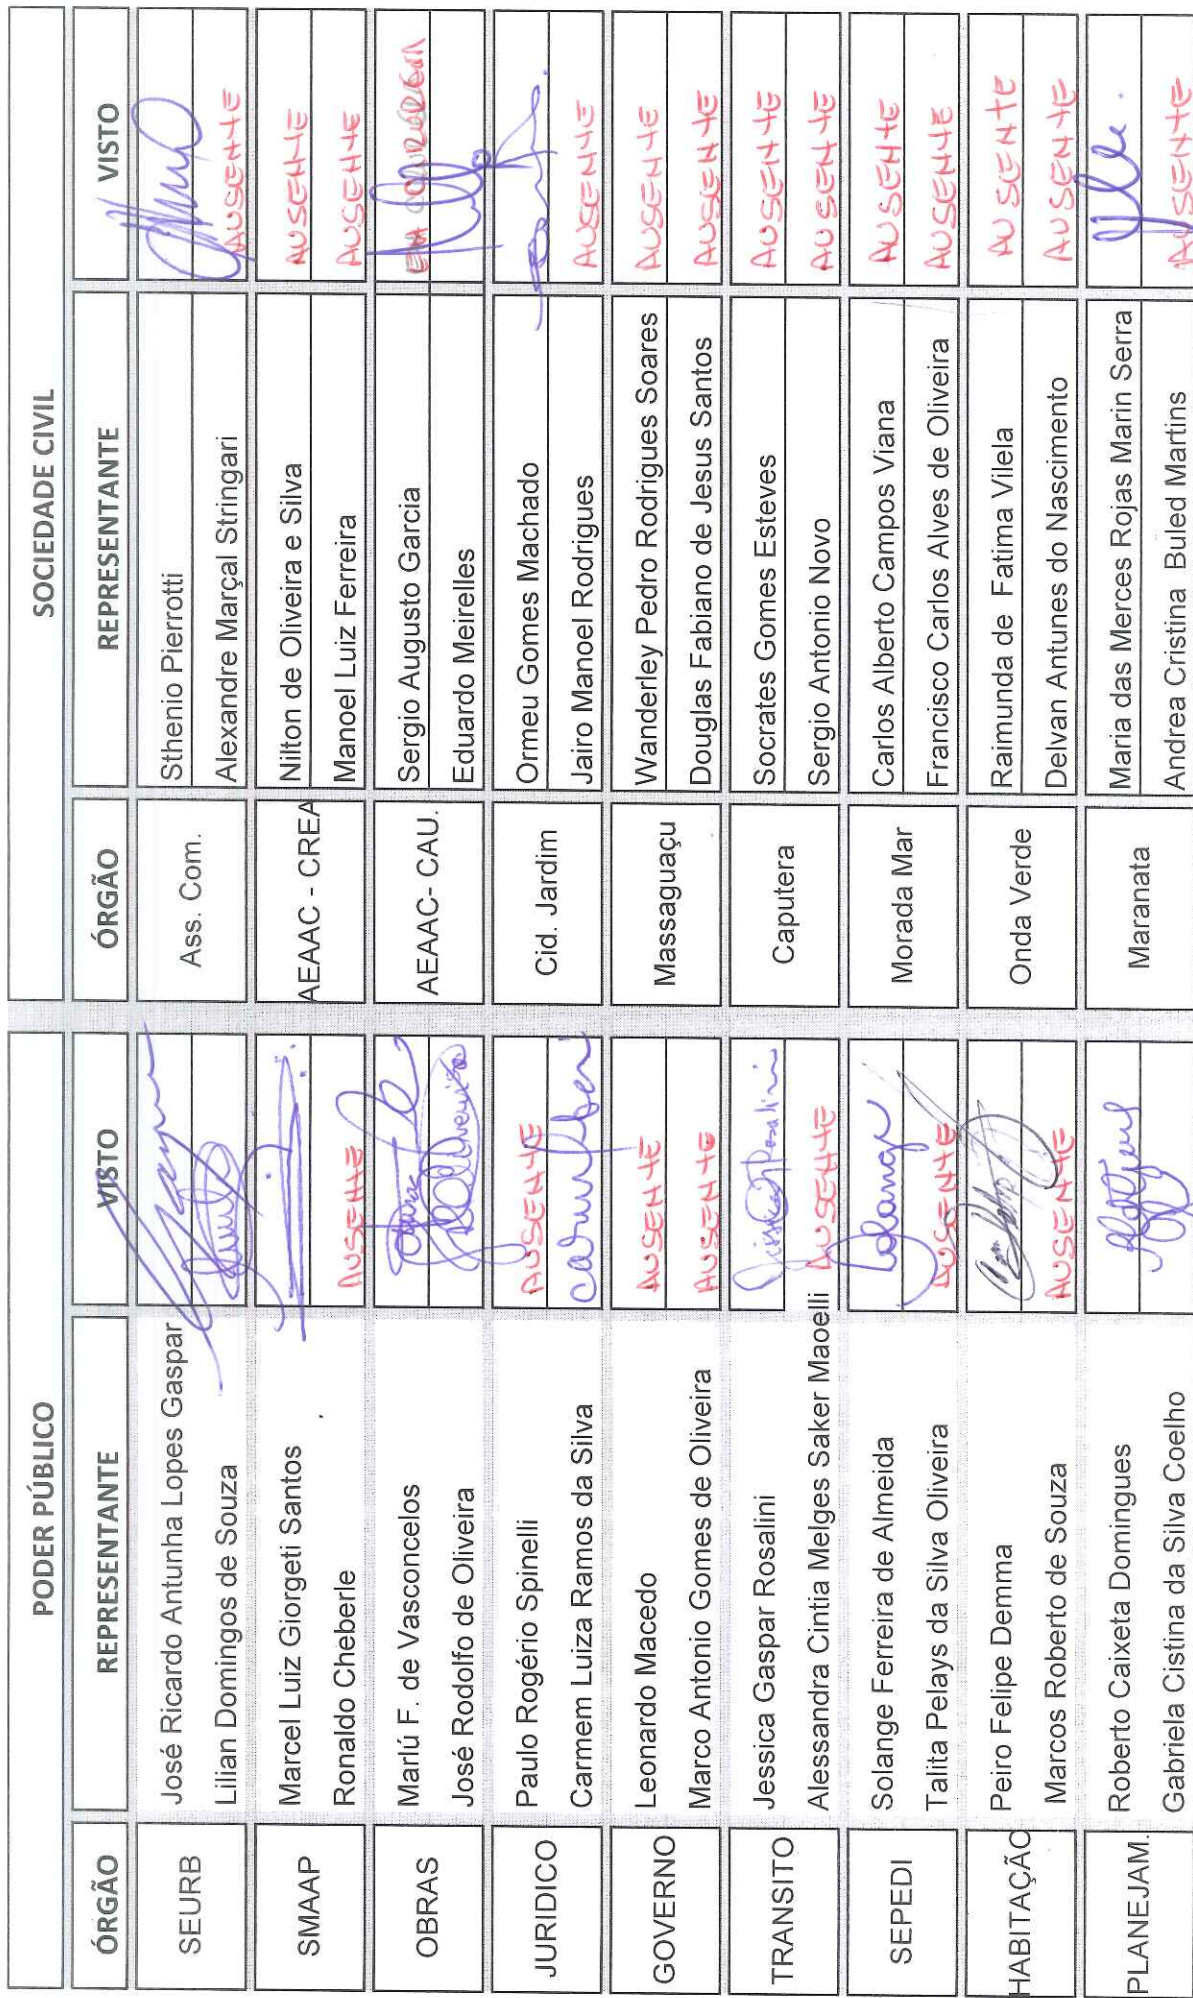 PODER PÚBLICO
ÓRGÃO REPRESENTANTE VISTO
SEURB
José Ricardo Antunha Lopes Gaspar
Lilian Domingos de Souza
SMAAP
Marcel Luiz Giorgeti Santos
Ronaldo Cheberle AUSENTE
OBRAS
Marlú F. de Vasconcelos
José Rodolfo de Oliveira
JURIDICO
Paulo Rogério Spinelli AUSENTE
Carmem Luiza Ramos da Silva
GOVERNO
Leonardo Macedo AUSENTE
Marco Antonio Gomes de Oliveira AUSENTE
TRANSITO
Jessica Gaspar Rosalini
Alessandra Cintia Melges Saker Maoelli AUSENTE
SEPEDI
Solange Ferreira de Almeida Solange
Talita Pelays da Silva Oliveira AUSENTE
HABITAÇÃO
Peiro Felipe Demma
Marcos Roberto de Souza AUSENTE
PLANEJAM.
Roberto Caixeta Domingues
Gabriela Cistina da Silva Coelho
SOCIEDADE CIVIL
ÓRGÃO REPRESENTANTE VISTO
Ass. Com.
Sthenio Pierrotti
Alexandre Marçal Stringari AUSENTE
AEAAC - CREA
Nilton de Oliveira e Silva AUSENTE
Manoel Luiz Ferreira AUSENTE
AEAAC- CAU.
Sergio Augusto Garcia
Eduardo Meirelles
Cid. Jardim
Ormeu Gomes Machado
Jairo Manoel Rodrigues AUSENTE
Massaguaçu
Wanderley Pedro Rodrigues Soares AUSENTE
Douglas Fabiano de Jesus Santos AUSENTE
Caputera
Socrates Gomes Esteves AUSENTE
Sergio Antonio Novo AUSENTE
Morada Mar
Carlos Alberto Campos Viana AUSENTE
Francisco Carlos Alves de Oliveira AUSENTE
Onda Verde
Raimunda de Fatima Vilela AUSENTE
Delvan Antunes do Nascimento AUSENTE
Maranata
Maria das Merces Rojas Marin Serra
Andrea Cristina Buled Martins AUSENTE